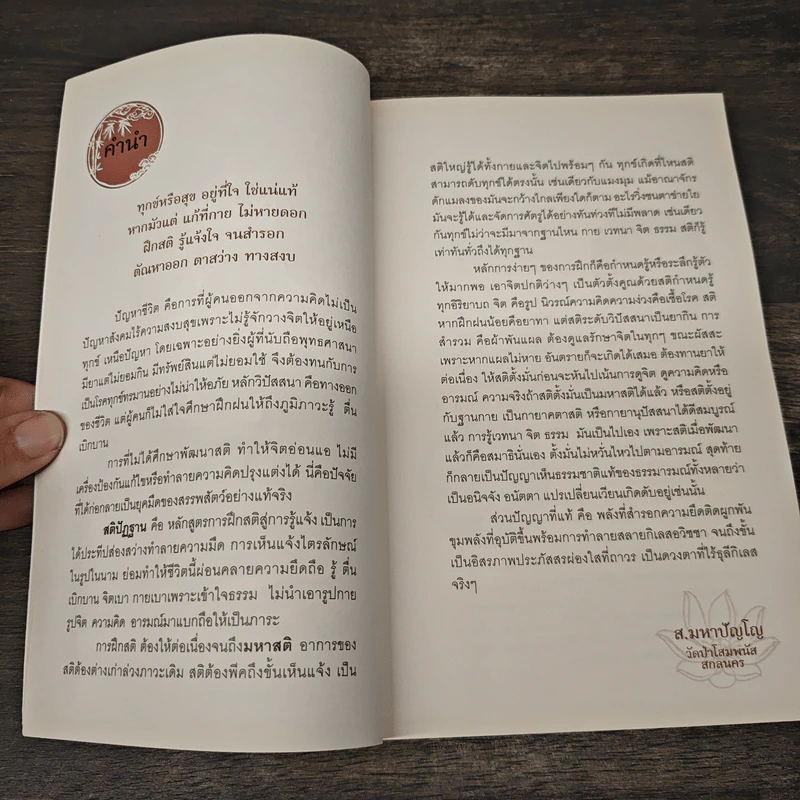 คำนำ
ทุกข์หรือสุข อยู่ที่ใจ ใช่แน่แท้
หากมัวแต่ แก้ที่กาย ไม่หายดอก
ฝึกสติ รู้แจ้งใจ จนสำรอก
ตัณหาออก ตาสว่าง ทางสงบ
ปัญหาชีวิต คือการที่ผู้คนออกจากความคิดไม่เป็น
ปัญหาสังคมไร้ความสงบสุขเพราะไม่รู้จักวางจิตให้อยู่เหนือ
ทุกข์ เหนือปัญหา โดยเฉพาะอย่างยิ่งผู้ที่นับถือพุทธศาสนา
มียาแต่ไม่ยอมกิน มีทรัพย์สินแต่ไม่ยอมใช้ จึงต้องทนกับการ
เป็นโรคทุกข์ทรมานอย่างไม่น่าให้อภัย หลักวิปัสสนา คือทางออก
ของชีวิต แต่ผู้คนก็ไม่ใส่ใจศึกษาฝึกฝนให้ถึงภูมิภาวะรู้ ตื่น
เบิกบาน
การที่ไม่ได้ศึกษาพัฒนาสติ ทำให้จิตอ่อนแอ ไม่มี
เครื่องป้องกันแก้ไขหรือทำลายความคิดปรุงแต่งได้ นี่คือปัจจัย
ที่ได้ก่อกลายเป็นยุคมืดของสรรพสัตว์อย่างแท้จริง
สติปัฏฐาน คือ หลักสูตรการฝึกสติสู่การรู้แจ้ง เป็นการ
ได้ประทีปส่องสว่างทำลายความมืด การเห็นแจ้งไตรลักษณ์
ในรูปในนาม ย่อมทำให้ชีวิตนี้ผ่อนคลายความยึดถือ รู้ ตื่น
เบิกบาน จิตเบา กายเบาเพราะเข้าใจธรรม ไม่นำเอารูปกาย
รูปจิต ความคิด อารมณ์มาแบกถือให้เป็นภาระ
การฝึกสติ ต้องให้ต่อเนื่องจนถึงมหาสติ อาการของ
สติต้องต่างเก่าล่วงภาวะเดิม สติต้องพีคถึงขั้นเห็นแจ้ง เป็น
สติใหญ่รู้ได้ทั้งกายและจิตไปพร้อมๆ กัน ทุกข์เกิดที่ไหนสติ
สามารถดับทุกข์ได้ตรงนั้น เช่นเดียวกับแมงมุม แม้อาณาจักร
ดักแมลงของมันจะกว้างไกลเพียงใดก็ตาม อะไรวิ่งชนตาข่ายใย
มันจะรู้ได้และจัดการศัตรูได้อย่างทันท่วงทีไม่มีพลาด เช่นเดียว
กันทุกข์ไม่ว่าจะมีมาจากฐานไหน กาย เวทนา จิต ธรรม สติก็รู้
เท่าทันทั่วถึงได้ทุกฐาน
หลักการง่ายๆ ของการฝึกก็คือกำหนดรู้หรือระลึกรู้ตัว
ให้มากพอ เอาจิตปกติว่างๆ เป็นตัวตั้งคูณด้วยสติกำหนดรู้
ทุกอิริยาบถ จิต คือรูป นิวรณ์ความคิดความง่วงคือเชื้อโรค สติ
หากฝึกฝนน้อยคือยาทา แต่สติระดับวิปัสสนาเป็นยากิน การ
สำรวม คือผ้าพันแผล ต้องดูแลรักษาจิตในทุกๆ ขณะผัสสะ
เพราะหากแผลไม่หาย อันตรายก็จะเกิดได้เสมอ ต้องทานยาให้
ต่อเนื่อง ให้สติตั้งมั่นก่อนจะหันไปเน้นการดูจิต ดูความคิดหรือ
อารมณ์ ความจริงถ้าสติตั้งมั่นเป็นมหาสติได้แล้ว หรือสติตั้งอยู่
กับฐานกาย เป็นกายาคตาสติ หรือกายานุปัสสนาได้ดีสมบูรณ์
แล้ว การรู้เวทนา จิต ธรรม มันเป็นไปเอง เพราะสติเมื่อพัฒนา
แล้วก็คือสมาธินั่นเอง ตั้งมั่นไม่หวั่นไหวไปตามอารมณ์ สุดท้าย
ก็กลายเป็นปัญญาเห็นธรรมชาติแท้ของธรรมารมณ์ทั้งหลายว่า
เป็นอนิจจัง อนัตตา แปรเปลี่ยนเวียนเกิดดับอยู่เช่นนั้น
ส่วนปัญญาที่แท้ คือ พลังที่สำรอกความยึดติดผูกพัน
ขุมพลังที่อุบัติขึ้นพร้อมการทำลายสลายกิเลสอวิชชา จนถึงขั้น
เป็นอิสรภาพประภัสสรผ่องใสที่ถาวร เป็นดวงตาที่ไร้ธุลีกิเลส
จริงๆ
ส.มหาปัญโญ
วัดป่าโสมพนัส
สกลนคร